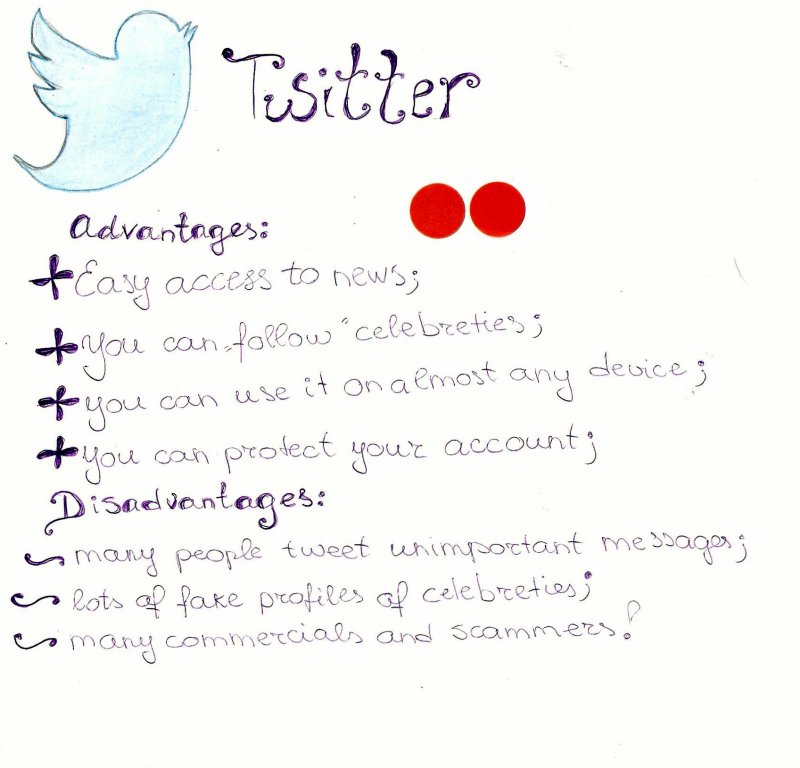 Twitter
Advantages:
+ Easy access to news;
+ You can „follow“ celebreties;
+ you can use it on almost any device;
+ you can protect your account;
Disadvantages:
~ many people tweet unimportant messages;
~ lots of fake profiles of celebreties;
~ many commercials and scammers!